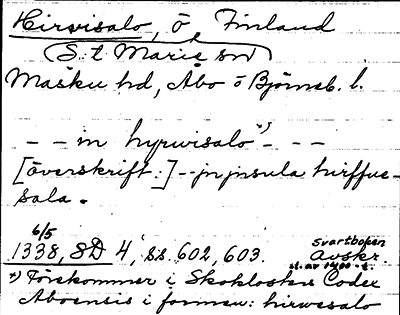 Hirvisalo, ö Finland
(S:t Marie sn)
Masku hd, Åbo o Björneb. l.
- - in hyrwisalo *) - - -
[överskrift:] - - jn jnsula hirffue-
sala.
6/5
1338, SD 4, ss. 602, 603.
Svartboken
Avskr.
sl. av 1400-t.
*) Förekommer i Skokloster Codex
Aboensis i formen: hirwesalo